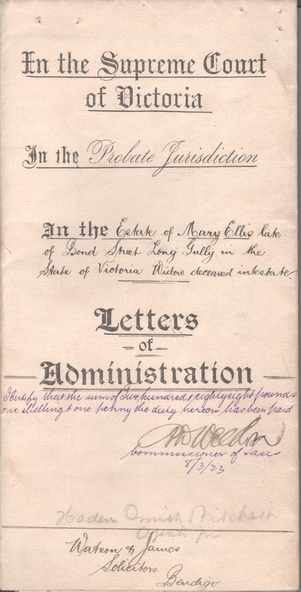 In the Supreme Court
of Victoria
In the Probate Jurisdiction
In the Estate of Mary Ellis late
of Bond Street Long Gully in the
State of Victoria Widow deceased intestate
Letters
of
Administration
I Certify that the sum of Two hundred & eighty eight pounds
one shilling & one penny the duty hereon has been paid
Commissioner of Taxes
8/3/23
Watson & James
Solicitors
Bendigo